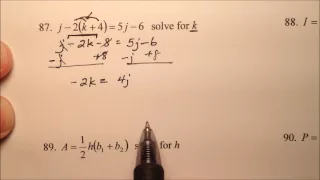 87. j - 2(k + 4) = 5j - 6 solve for k
88. I =
j - 2k - 8 = 5j - 6
-j +8 -j +8
-2k = 4j
89. A = 1/2 h(b₁ + b₂) s for h
90. P =